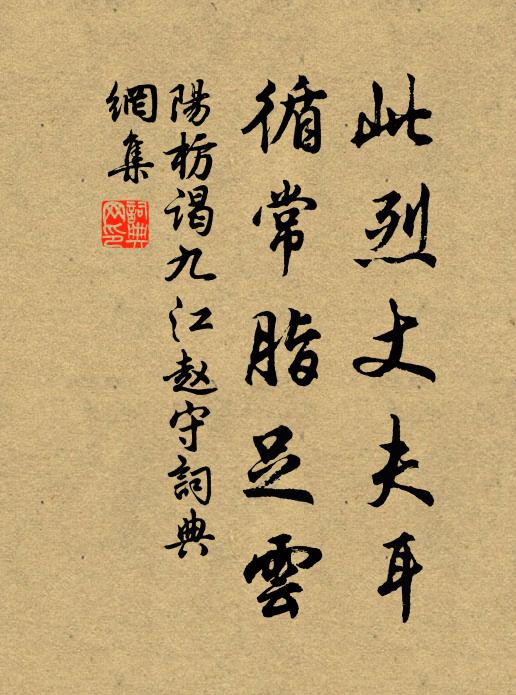 此烈丈夫耳
循常脂足雲
陽枋謁九江赵守詞典
網集
詞典網印